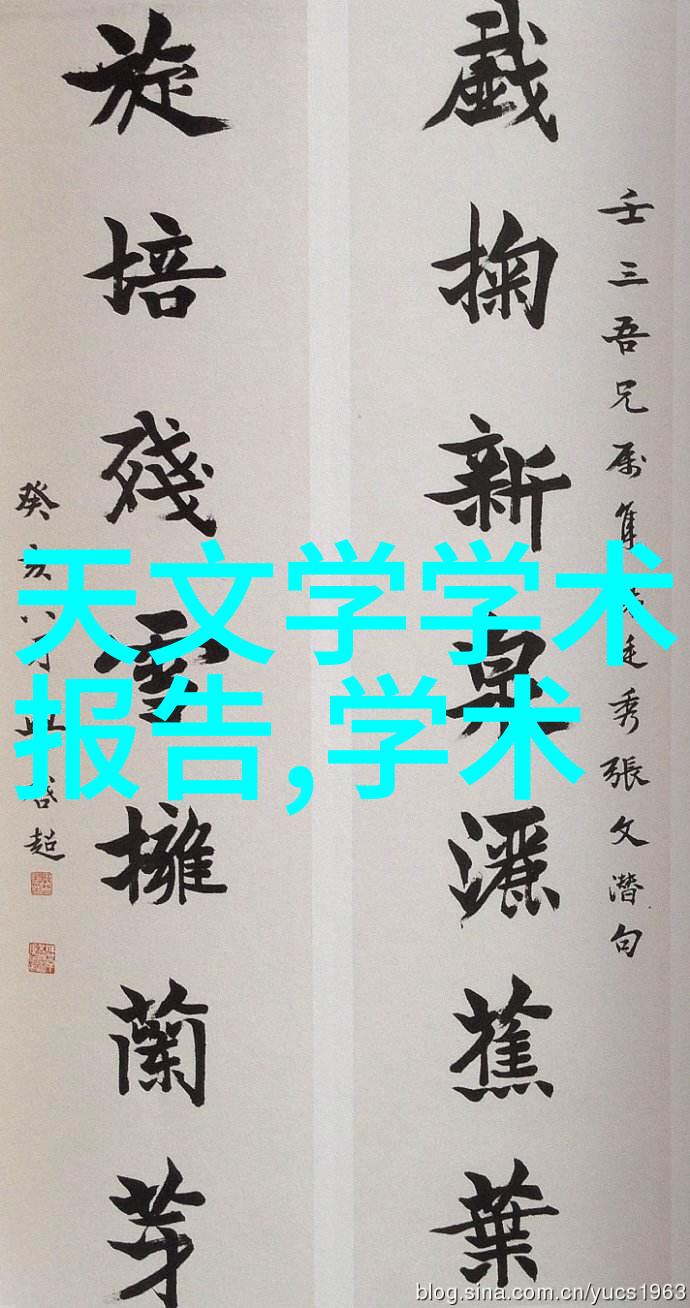 戲掬新泉灑蕉葉
旋培殘雪擁蘭芽
壬三吾兄屬集
秀張文潛句
癸亥八月
啓超
天文学学术
报告,学术
blog.sina.com.cn/yucs1963